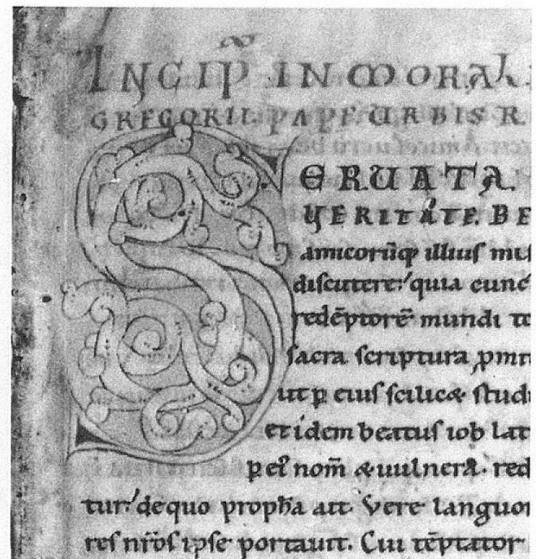 INCIP̄ IN MORAL
GREGORII. PAPE. URBIS R
SERUATA
VERITATE. BE
amicorūq; illius mi
discutere: quia cunc
redēptorē mundi
sacra scriptura
ut p̱ eius scilicet stud
et idem beatus iob lat
p̱ et' nom̄ & uulnera. red
tur. de quo prophā ait. Vere languo
res nr̄os ipse portauit. Cui tēptator